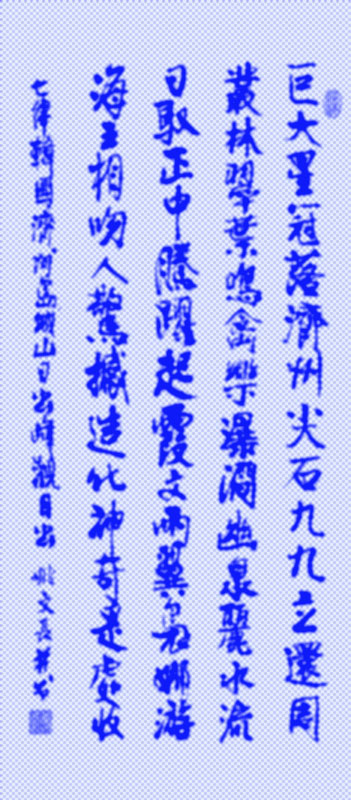 巨大星冠落濟州尖石九九立還周
叢林翠葉鳴禽樂瀑澗幽泉麗水流
日正中騰躍起霞文兩翼裊娜游
海相吻人驚撼造化神奇是處收
七律韓國濟州島城山日出峰觀日出 文長并书